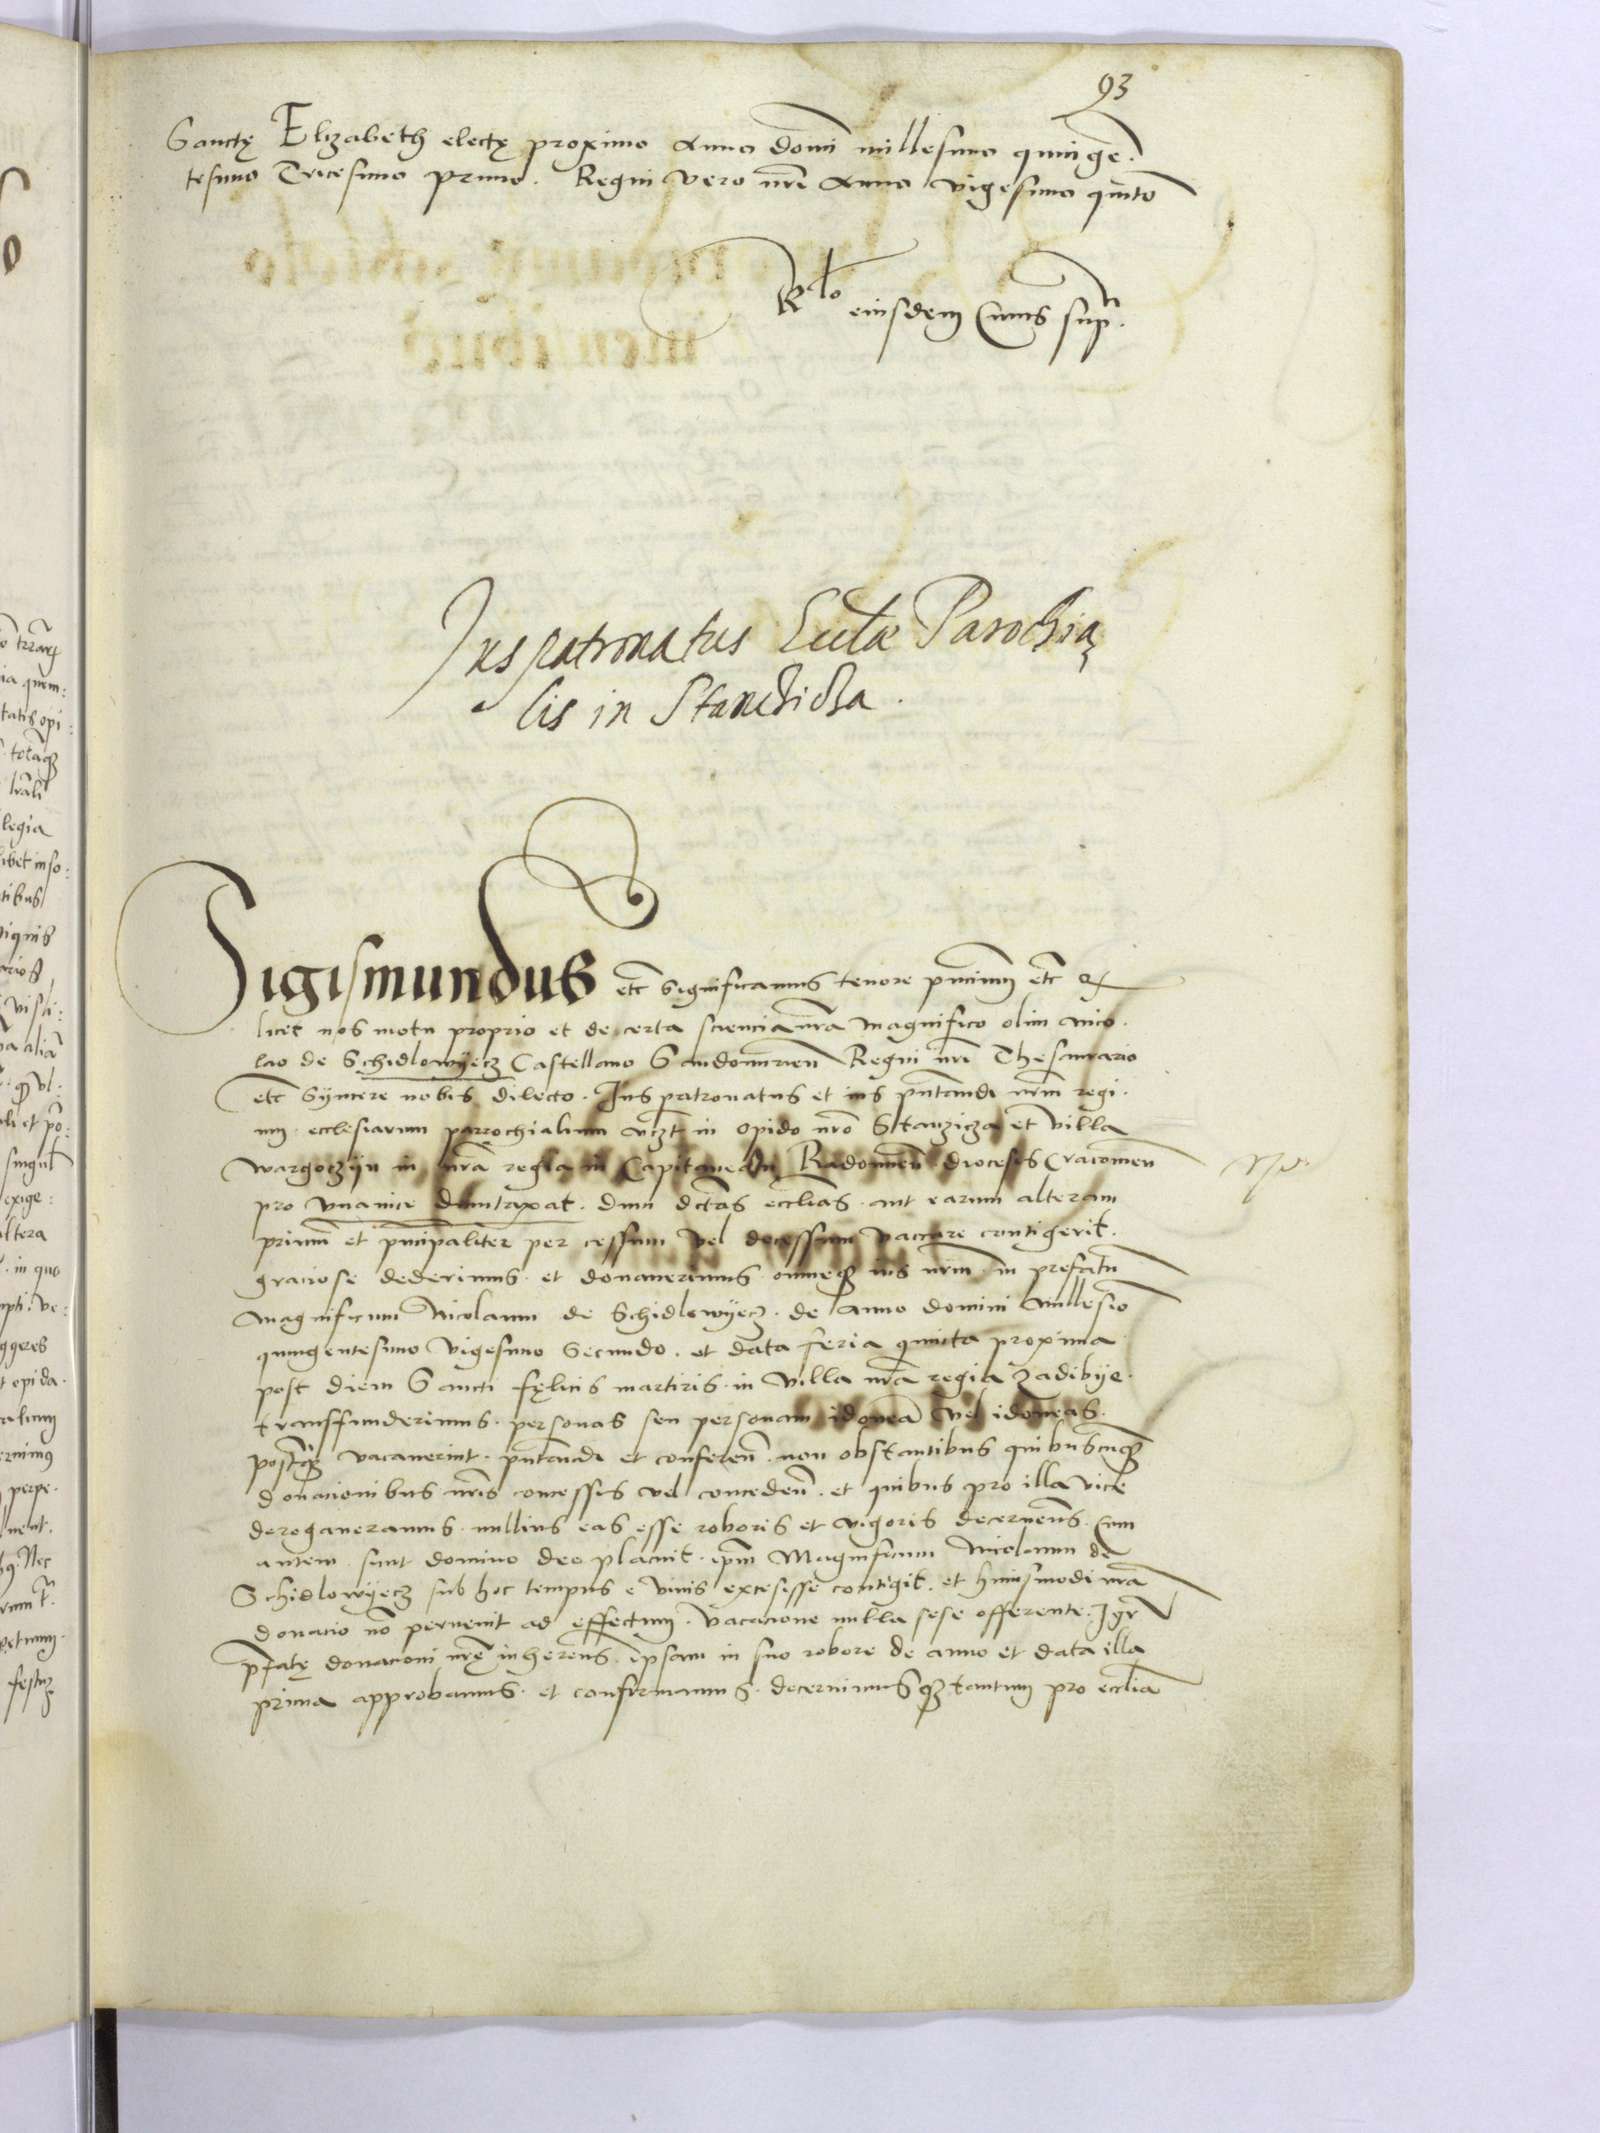 93
Sanctę Elizabeth electę proximo Anno domi millesimo quinge.
tesimo Tricesimo primo. Regni vero nrī Anno vigesimo quinto
Rlo eiusdem Cuius sup.
Jus patronatus Eccłæ Parochia
lis in Stanchicha.
Sigismundus etc significamus tenore pntium etc
licet nos motu proprio et de certa sciencia nrā Magnifico olim Nico.
lao de Schidlowyecz Castellano Sandomirien Regni nrī Thesaurario
etc Syncere nobis dilecto. Jus patronatus et ius pntandi nrm regi.
um ecclesiarum parrochialium vczt in opido nrō Stanzicza et villa
wargoczyn in nrā regia in Capitaneatu Radomien diocesis Cracovien
pro vna vice dumtaxat. dum dctas ecclias aut earum alteram
primum et pncipaliter per cessum vel decessum vaccare contigerit.
graciose dederimus et donaverimus omneqȝ ius nrm in prefatu
magnificum Nicolaum de Schidlowyecz. de anno domini Millesio
quingentesimo vigesimo secundo. et data feria quinta proxima
post diem Sancti fęlicis martiris in villa nrā regia Zadibye.
transfunderimus. personas seu personam idoneā vel idoneas.
postqȝ vacaverint. pntandi et conferen non obstantibus quibuscuqȝ
donacionibus nris concessis vel conceden. et quibus pro illa vice
derogaveramus. nullius eas esse roboris et vigoris decernens. Cum
autem sunt domino deo placuit. ipm Magnificum Nicolaum de
Schidlowyecz sub hoc tempus e vivis excesisse contigit. et huiusmodi nrā
donacio nō pervenit ad effectum. Vacacione nulla sese offerente. Jgr
pfatę donacioni nrę inherens. ipsam in suo robore de anno et data illa
prima approbamus et confirmamus. decernimusqȝ tantum pro ecclia